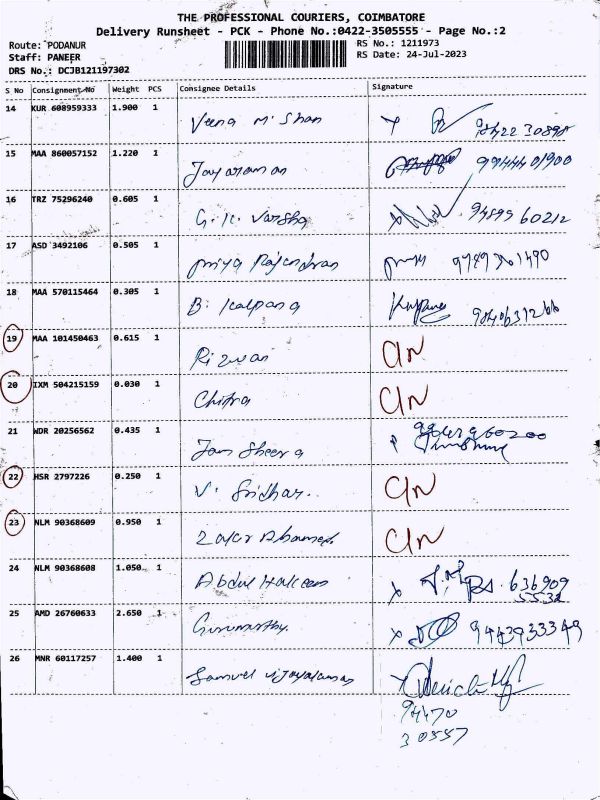 THE PROFESSIONAL COURIERS, COIMBATORE
Delivery Runsheet - PCK - Phone No.:0422-3505555 - Page No.:2
Route: PODANUR RS No.: 1211973
Staff: PANEER RS Date: 24-Jul-2023
DRS No.: DCJB121197302
S No Consignment No Weight PCS Consignee Details Signature
14 KUR 608959333 1.900 1 Veena M Shan
15 MAA 860057152 1.220 1 Jayaraman 9944401900
16 TRZ 75296240 0.605 1 G.K. Varsha 9489960212
17 ASD 3492106 0.505 1 Priya Rajendran
18 MAA 570115464 0.305 1 B. Kalpana
19 MAA 101450463 0.615 1 Rizwan C/N
20 IXM 504215159 0.030 1 Chitra C/N
21 WDR 20256562 0.435 1
22 HSR 2797226 0.250 1 V. Sridhar. C/N
23 NLM 90368609 0.950 1 C/N
24 NLM 90368608 1.050 1 Abdul Hakeem 636909
5532
25 AMD 26760633 2.650 1 Gurumurthy. 9443933349
26 MNR 60117257 1.400 1 Samuel
94470
30557